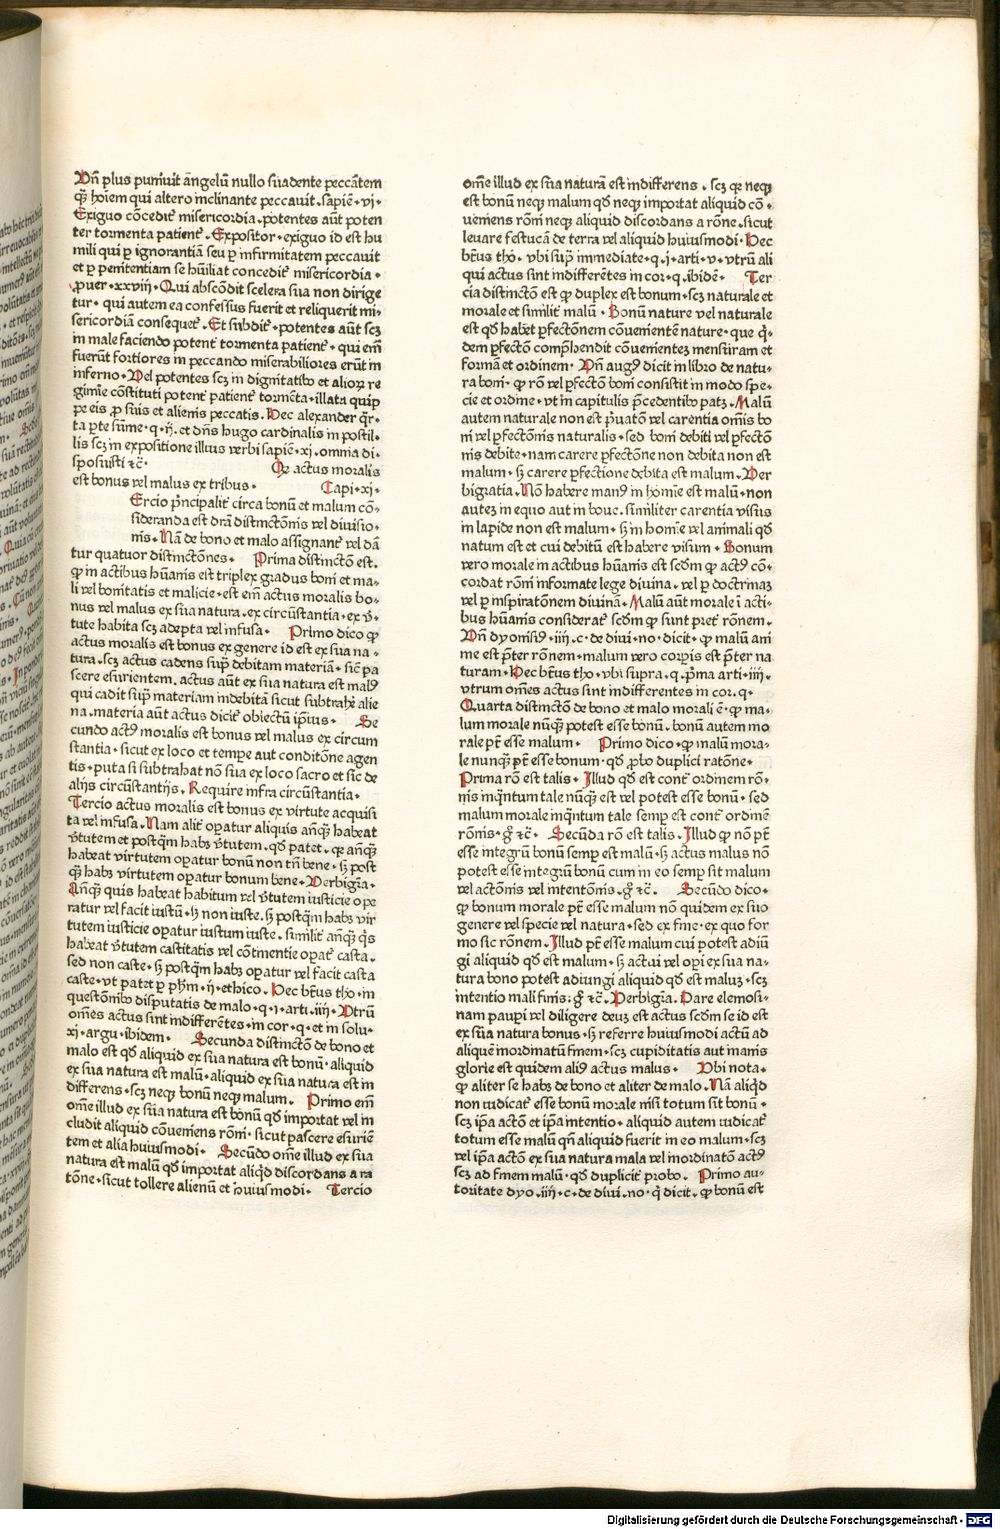 Vn̄ plus puniuit angelū nullo suadente peccātem
q̄ʒ hoīem qui altero inclinante peccauit. sapiē. vi.
Exiguo cōcedit᷑ misericordia. potentes aūt poten
ter tormenta patient᷑. Expositor. exiguo id est hu
mili qui ꝑ ignorantiā seu ꝑ infirmitatem peccauit
et ꝑ penitentiam se hūiliat concedit᷑ misericordia.
ꝓuer. xxviij. Qui abscōdit scelera sua non dirige
tur. qui autem ea confessus fuerit et reliquerit mi-
sericordiā consequet᷑. Et subdit᷑. potentes aūt scꝫ
in male faciendo potent᷑ tormenta patient᷑. qui em̄
fuerūt fortiores in peccando miserabiliores erūt in
inferno. Vel potentes scꝫ in dignitatibꝰ et alioꝝ re
gimīe cōstituti potent᷑ patient᷑ tormēta. illata quip
pe eis ꝓ suis et alienis peccatis. Hec alexander q̄r-
ta ꝑte sūme. q. ij. et dn̄s hugo cardinalis in postil-
lis scꝫ in expositione illius verbi sapiē. xj. omnia di-
sposuisti ⁊c̄. Qꝙ actus moralis
est bonus vel malus ex tribus. Capi. xj.
Ercio p̄ncipalit᷑ circa bonū et malum cō-
sideranda est dr̄a distinctōnis vel diuisio-
nis. Nā de bono et malo assignant᷑ vel dā
tur quatuor distinctōnes. Prima distinctō est.
ꝙ in actibus hūanis est triplex gradus boni et ma-
li vel bonitatis et malicie. est em̄ actus moralis bo-
nus vel malus ex sua natura. ex circūstantia. ex v̄-
tute habita scꝫ adepta vel infusa. Primo dico ꝙ
actus moralis est bonus ex genere id est ex sua na-
tura. scꝫ actus cadens suꝑ debitam materiā. sic̄ pa
scere esurientem. actus aūt ex sua natura est malꝰ
qui cadit suꝑ materiam indebitā sicut subtrahē alie
na. materia aūt actus dicit᷑ obiectū ip̄ius. Se
cundo actꝰ moralis est bonus vel malus ex circum
stantia. sicut ex loco et tempe aut conditōne agen
tis. puta si subtrahat nō sua ex loco sacro et sic de
alijs circūstantijs. Require infra circūstantia.
Tercio actus moralis est bonus ex virtute acquisi
ta vel infusa. Nam alit᷑ oꝑatur aliquis an̄q̄ʒ habeat
v̄tutem et postq̄m habꝫ v̄tutem. qd̄ patet. qꝛ an̄q̄ʒ
habeat virtutem oꝑatur bonū non tn̄ bene. sꝫ post
q̄ʒ habꝫ virtutem oꝑatur bonum bene. Verbigr̄a.
Anq̄ʒ quis habeat habitum vel v̄tutem iusticie ope
ratur vel facit iustū. sꝫ non iuste. sꝫ postq̄m habꝫ vir
tutem iusticie oꝑatur iustum iuste. similit᷑ an̄q̄ʒ q̄s
habeat v̄tutem castitatis vel cōtinentie oꝑat᷑ casta.
sed non caste. sꝫ postq̄m habꝫ oꝑatur vel facit casta
caste. vt patet ꝑ ph̄m. ij. ethico. Hec bt̄us tho. in
questōnibꝰ disputatis de malo. q. i. arti. iiij. Vtrū
om̄es actus sint indifferētes. in cor. q. et in solu.
xj. argu. ibidem. Secunda distinctō de bono et
malo est qd̄ aliquid ex sua natura est bonū. aliquid
ex sua natura est malū. aliquid ex sua natura est in
differens. scꝫ neqꝫ bonū neqꝫ malum. Primo em̄
om̄e illud ex sua natura est bonū qd̄ importat vel in
cludit aliquid cōueniens rōni. sicut pascere esuriē
tem et alia huiusmodi. Secūdo om̄e illud ex sua
natura est malū qd̄ importat aliqd̄ discordans a ra
tōne. sicut tollere alienū et huiusmodi. Tercio
om̄e illud ex sua naturā est indifferens. scꝫ qꝛ neqꝫ
est bonū neqꝫ malum qd̄ neqꝫ importat aliquid cō-
ueniens rōni neqꝫ aliquid discordans a rōne. sicut
leuare festucā de terra vel aliquid huiusmodi. Hec
bt̄us tho. vbi suꝑ immediate. q. j. arti. v. vtrū ali
qui actus sint indifferētes in cor. q. ibidē. Ter
cia distinctō est ꝙ duplex est bonum. scꝫ naturale et
morale et similit᷑ malū. Bonū nature vel naturale
est qd̄ habet ꝑfectōnem cōuenientē nature. que q̄-
dem ꝑfectō comp̄hendit cōuenientez mensuram et
formā et ordinem. Vn̄ augꝰ dicit in libro de natu-
ra boni. ꝙ rō vel ꝑfectō boni consistit in modo spe-
cie et ordine. vt in capitulis p̄cedentibꝰ patꝫ. Malū
autem naturale non est p̄uatō vel carentia om̄is bo
ni vel ꝑfectōnis naturalis. sed boni debiti vel ꝑfectō
nis debite. nam carere ꝑfectōne non debita non est
malum. sꝫ carere ꝑfectione debita est malum. Ver
bigratia. Nō habere manꝰ in homīe est malū. non
autez in equo aut in boue. similiter carentia visus
in lapide non est malum. sꝫ in homīe vel animali qd̄
natum est et cui debitū est habere visum. Bonum
vero morale in actibus hūanis est scd̄m ꝙ actꝰ cō-
cordat rōni informate lege diuina. vel ꝑ doctrinaꝫ
vel ꝑ inspiratōnem diuinā. Malū aūt morale ī acti-
bus hūanis considerat᷑ scd̄m ꝙ sunt pret᷑ rōnem.
Vn̄ dyonisiꝰ. iiij. c. de diui. no. dicit. ꝙ malū ani
me est p̄ter rōnem. malum vero corꝑis est p̄ter na
turam. Hec bt̄us tho. vbi supra. q. p̄ma arti. iiij.
vtrum om̄es actus sint indifferentes in cor. q.
Quarta distinctō de bono et malo morali ē. ꝙ ma-
lum morale nūq̄ʒ potest esse bonū. bonū autem mo
rale pt̄ esse malum. Primo dico. ꝙ malū mora-
le nunq̄ʒ pt̄ esse bonum. qd̄ ꝓbo duplici ratōne.
Prima rō est talis. Illud qd̄ est cont᷑ ordinem rō-
nis inq̄ntum tale nūq̄ʒ est vel potest esse bonū. sed
malum morale inq̄ntum tale semꝑ est cont᷑ ordinē
rōnis. gͦ ⁊c̄. Secūda rō est talis. Illud qꝛ nō pt̄
esse integrū bonū semꝑ est malū. sꝫ actus malus nō
potest esse integrū bonū cum in eo semꝑ sit malum
vel actōnis vel intentōnis. gͦ ⁊c̄. Secūdo dico.
ꝙ bonum morale pt̄ esse malum nō quidem ex suo
genere vel specie vel natura. sed ex fine. ex quo for
mo sic rōnem. Illud pt̄ esse malum cui potest adiū
gi aliquid qd̄ est malum. sꝫ actui vel oꝑi ex sua na-
tura bono potest adiungi aliquid qd̄ est maluꝫ. scꝫ
intentio mali finis. gͦ ⁊c̄. Verbigr̄a. Dare elemosi-
nam pauꝑi vel diligere deuꝫ est actus scd̄m se id est
ex sua natura bonus. sꝫ referre huiusmodi actū ad
aliquē inordinatū finem. scꝫ cupiditatis aut inanis
glorie est quidem aliꝰ actus malus. Vbi nota.
ꝙ aliter se habꝫ de bono et aliter de malo. Nā aliqd̄
non iudicat᷑ esse bonū morale nisi totum sit bonū.
scꝫ ip̄a actō et ip̄a intentio. aliquid autem iudicat᷑
totum esse malū qn̄ aliquid fuerit in eo malum. scꝫ
vel ip̄a actō ex sua natura mala vel inordinatō actꝰ
scꝫ ad finem malū. qd̄ duplicit᷑ probo. Primo au-
toritate dyo. iiij. c. de diui. no. q̄ dicit. ꝙ bonū est
Digitalisierung gefördert durch die Deutsche Forschungsgemeinschaft - DFG